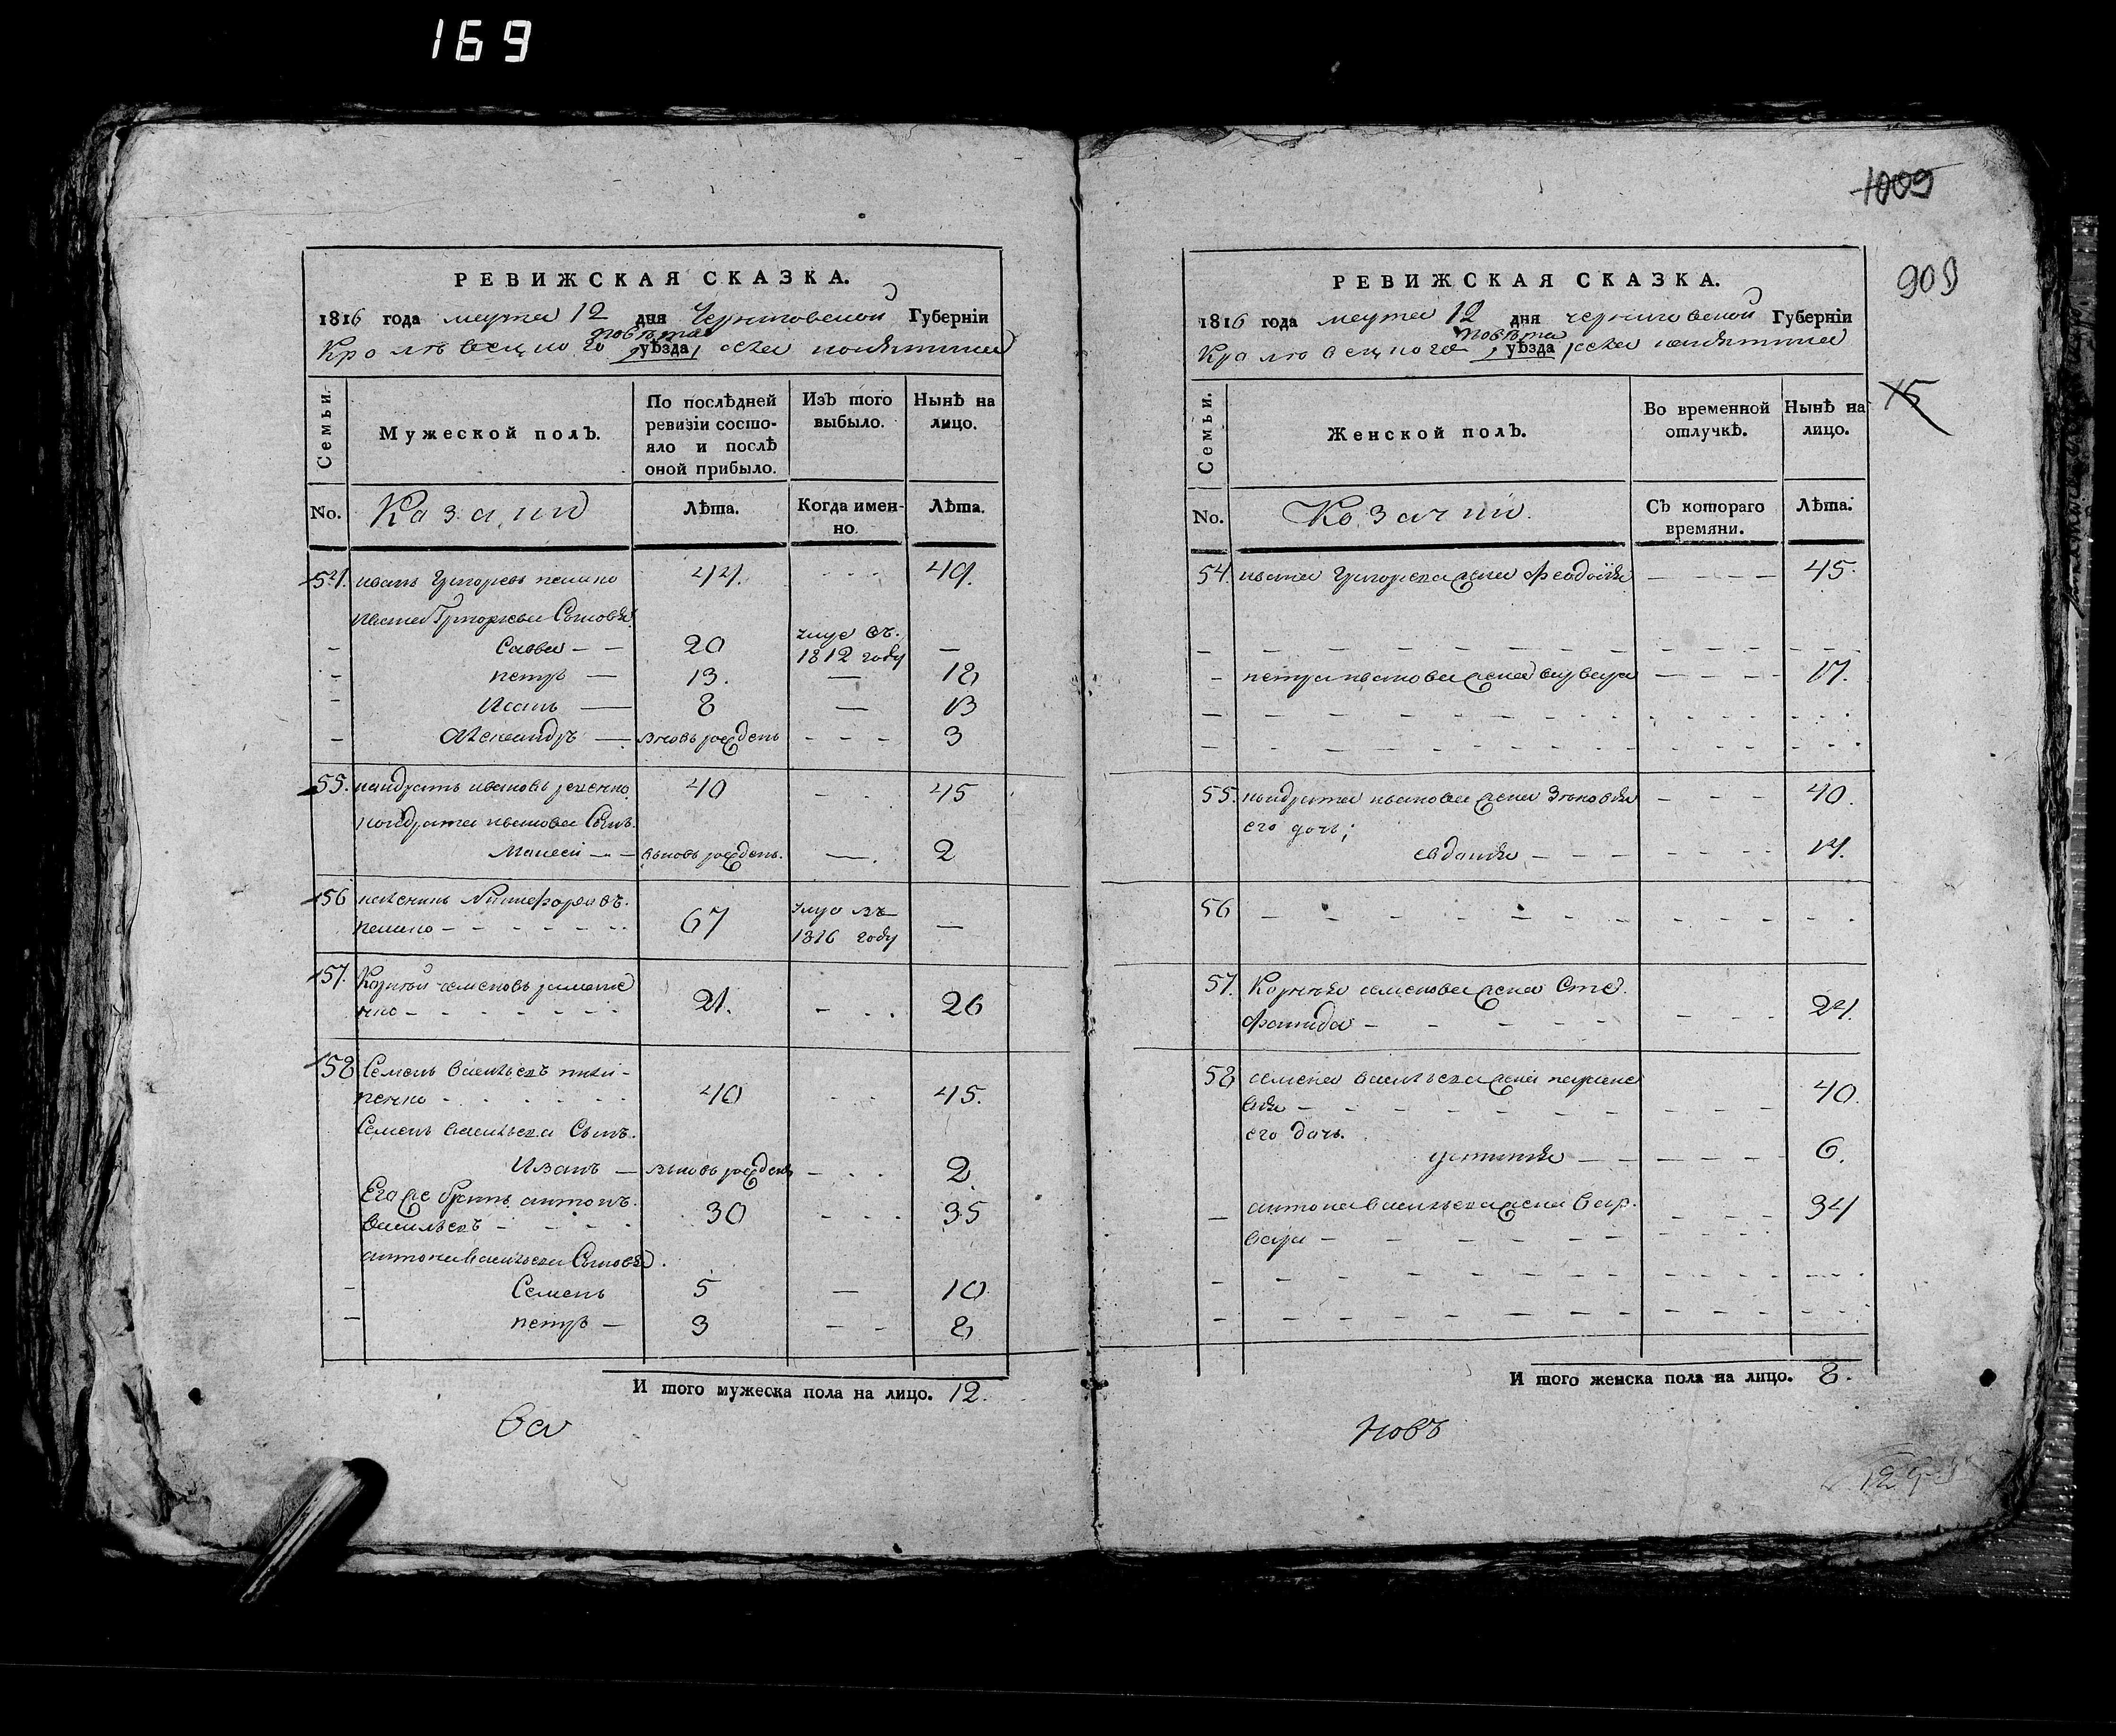 169
1009
909
15
РЕВИЖСКАЯ СКАЗКА.
1816 года марта 12 дня Черниговской Губерніи
повѣта
Кролевецкого уѣзда, села
Семьи.
Мужеской полъ.
По послѣдней ревизіи состояло и послѣ оной прибыло.
Изъ того выбыло.
Нынѣ на лицо.
No.
Козаки
Лѣта.
Когда именно.
Лѣта.
54. иванъ Григорьевъ 44. - - - 49.
ивана Григорьева Сыновья
Савва — — 20 1812 году —
петръ — 13. — 18
Исакъ — 8 — 13
Александръ — вновь рожденъ - - - 3
55. кондратъ ивановъ 40 - - - 45
кондрата иванова Сынъ.
Моисей — — вновь рожденъ. —. 2
56 Никифоровъ.
67 1816 году —
57. Корнѣй семеновъ
21. - - - 26
58 Семенъ васильевъ
40 - - 45.
Семена васильева Сынъ.
Иванъ — вновь рожденъ - - - 2
Его же братъ антонъ.
васильевъ - - - 30 - - - 35
антона васильева Сыновья.
Семенъ 5 — 10
петръ — 3 — - 8
И того мужеска пола на лицо. 12.
РЕВИЖСКАЯ СКАЗКА.
1816 года марта 12 дня черниговской Губерніи
повѣта
Кролевецкого уѣзда, села
Семьи.
Женской полъ.
Во временной отлучкѣ.
Нынѣ на лицо.
No.
Козачки.
Съ котораго времяни.
Лѣта.
54. ивана Григорьева жена Феодосія — - - — 45.
- петра иванова жена варвара — - - - 17.
55. кондрата иванова жена Зѣновія - - - 40.
его дочь;
евдокія - - - 14.
56
57. Корнѣя семенова жена Сте-
фанида - - - 24.
58 семена васильева жена параске
вія - - - 40.
его дочь.
устинія - - - 6.
- антона васильева жена вар-
вара - - - 34
И того женска пола на лицо. 8.
новъ